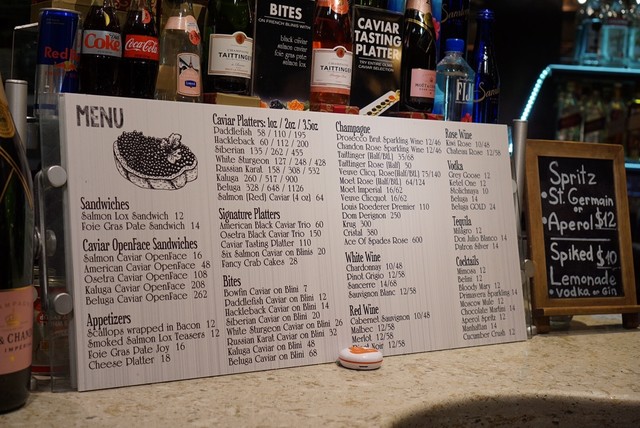 Red
Diet
Coke
Coca-Cola
TAITTINGER
BITES
ON FRENCH BLINIS WITH
black caviar
salmon caviar
foie gras pate
salmon lox
TAITTINGER
CAVIAR
TASTING
PLATTER
TRY ENTIRE DEMI
CAVIAR SELECTION
MOËT
FIJI
MENU
Sandwiches
Salmon Lox Sandwich 12
Foie Gras Pate Sandwich 14
Caviar OpenFace Sandwiches
Salmon Caviar OpenFace 16
American Caviar OpenFace 48
Osetra Caviar OpenFace 108
Kaluga Caviar OpenFace 208
Beluga Caviar OpenFace 262
Appetizers
Scallops wrapped in Bacon 12
Smoked Salmon Lox Teasers 12
Foie Gras Pate Joy 16
Cheese Platter 18
Caviar Platters: 1oz / 2oz / 3.5oz
Paddlefish 58 / 110 / 195
Hackleback 60 / 112 / 200
Siberian 135 / 262 / 455
White Sturgeon 127 / 248 / 428
Russian Karat 158 / 308 / 532
Kaluga 260 / 517 / 900
Beluga 328 / 648 / 1126
Salmon [Red] Caviar [4 oz] 64
Signature Platters
American Black Caviar Trio 60
Osetra Black Caviar Trio 150
Caviar Tasting Platter 110
Six Salmon Caviar on Blinis 20
Fancy Crab Cakes 28
Bites
Bowfin Caviar on Blini 7
Paddlefish Caviar on Blini 12
Hackleback Caviar on Blini 14
Siberian Caviar on Blini 20
White Sturgeon Caviar on Blini 26
Russian Karat Caviar on Blini 32
Kaluga Caviar on Blini 48
Beluga Caviar on Blini 68
Champagne
Prosecco Brut Sparkling Wine 12/46
Chandon Rose Sparkling Wine 12/46
Taittinger [Half/Btl] 35/68
Taittinger Rose [Half] 50
Veuve Clicq. Rose[Half/Btl] 75/140
Moet Rose [Half/Btl] 64/124
Moet Imperial 16/62
Veuve Clicquot 16/62
Louis Roederer Premier 110
Dom Perignon 250
Krug 300
Cristal 380
Ace Of Spades Rose 600
White Wine
Chardonnay 10/48
Pinot Grigio 12/58
Sancerre 14/68
Sauvignon Blanc 12/58
Red Wine
Cabernet Sauvignon 10/48
Malbec 12/58
Merlot 12/58
Noir 12/58
Rose Wine
Kiwi Rose 10/48
Chateau Rose 12/58
Vodka
Grey Goose 12
Ketel One 12
Stolichnaya 10
Beluga 14
Beluga GOLD 24
Tequila
Milagro 12
Don Julio Blanco 14
Patron Silver 14
Cocktails
Mimosa 12
Bellini 12
Bloody Mary 12
Primavera Sparkling 14
Moscow Mule 12
Chocolate Martini 14
Aperol Spritz 12
Manhattan 14
Cucumber Crush 12
Spritz
• St. Germain
or
• Aperol $12
Spiked $10
Lemonade
vodka or Gin
& CHAN
IMPERI